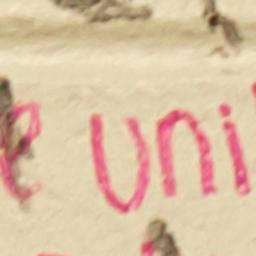 e uni